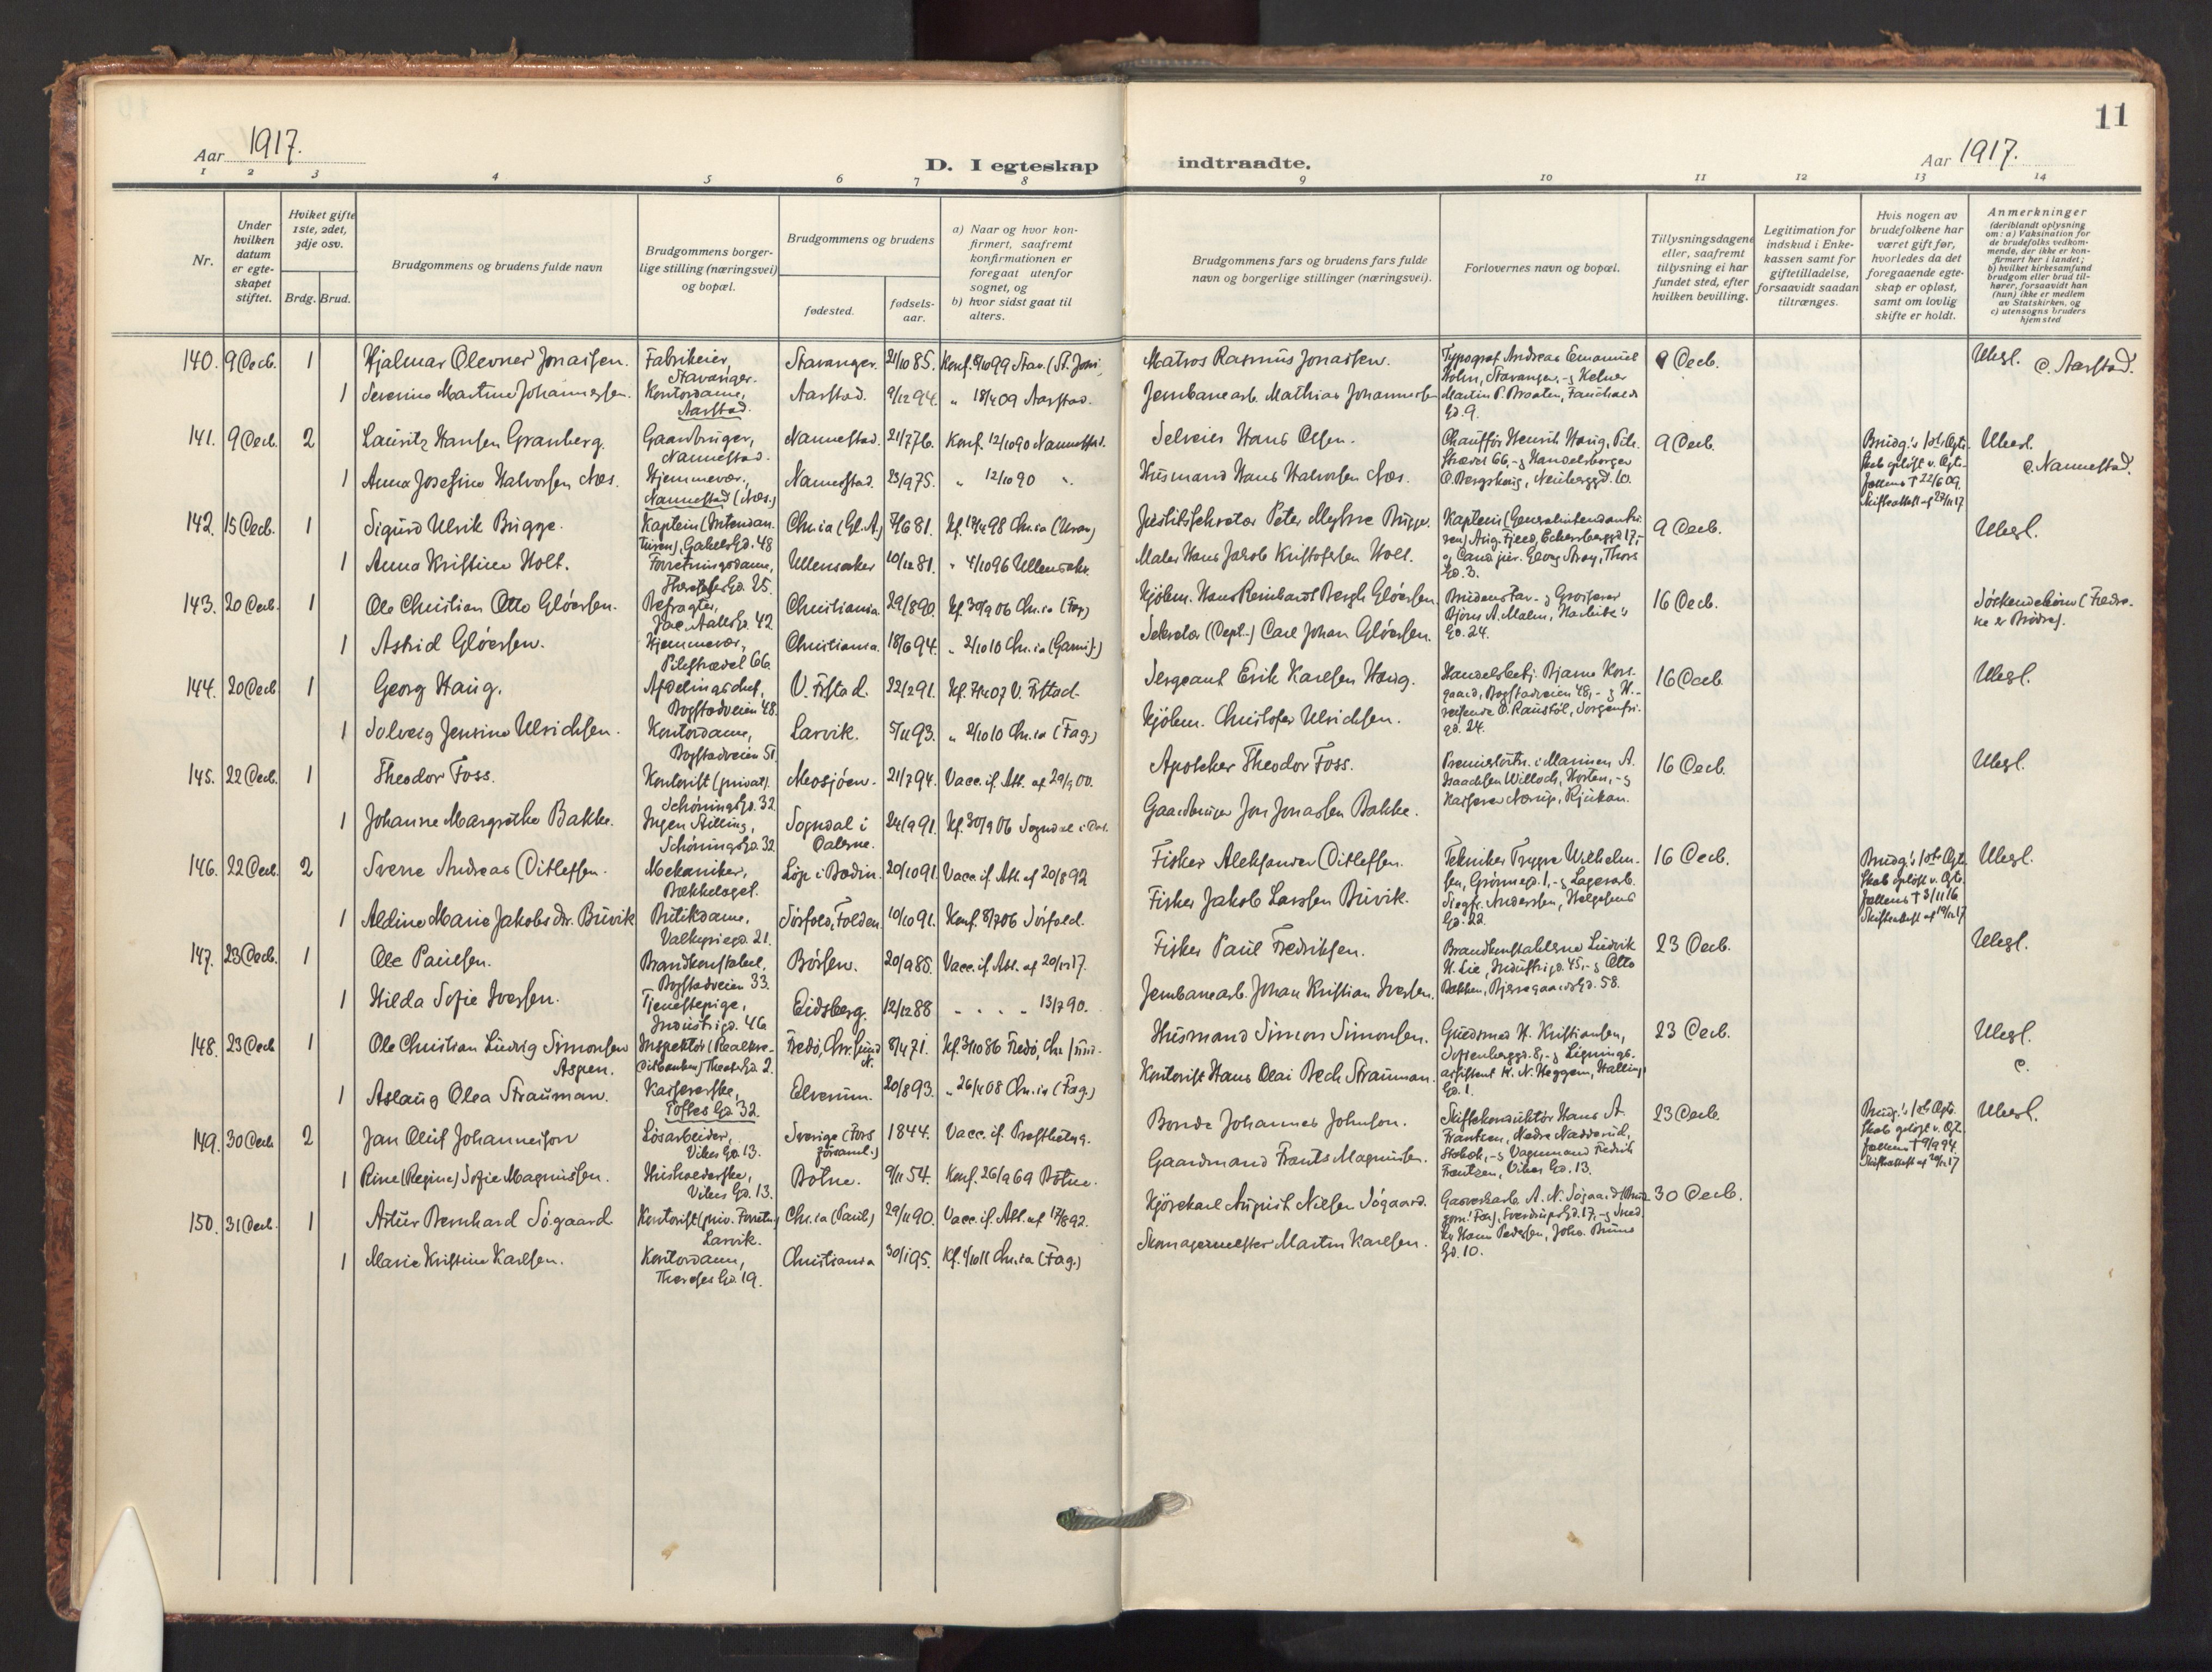 11
Aar 1917.
D. I egteskap indtraadte.
Aar 1917.
1 2 3 4 5 6 7 8 9 10 11 12 13 14
Nr.
Under hvilken datum er egteskapet stiftet.
Hviket gifte 1ste, 2det, 3dje osv.
Brdg. Brud.
Brudgommens og brudens fulde navn
Brudgommens borgerlige stilling (næringsvei) og bopæl.
Brudgommens og brudens
fødested.
fødsels-aar.
a) Naar og hvor konfirmert, saafremt konfirmationen er foregaat utenfor sognet, og
b) hvor sidst gaat til alters.
Brudgommens fars og brudens fars fulde navn og borgerlige stillinger (næringsvei).
Forlovernes navn og bopæl.
Tillysningsdagene eller, saafremt tillysning ei har fundet sted, efter hvilken bevilling.
Legitimation for indskud i Enkekassen samt for giftetilladelse, forsaavidt saadan tiltrænges.
Hvis nogen av brudefolkene har været gift før, hvorledes da det foregaaende egteskap er opløst, samt om lovlig skifte er holdt.
Anmerkninger
(deriblandt oplysning om: a) Vaksination for de brudefolks vedkommende, der ikke er konfirmert her i landet; b) hvilket kirkesamfund brudgom eller brud tilhører, forsaavidt han (hun) ikke er medlem av Statskirken, og c) utensogns bruders hjemsted
140. 9 Decb. 1 Hjalmar Olevner Jonassen. Fabrikeier, Stavanger. Stavanger. 21/10 85. Konf. 8/10 99 Stav. Matros Rasmus Jonassen. Typograf Andreas Emanuel Holm, Stavanger, og Kelner Martin P. Braaten, Fauchalds Gd. 9. 9 Decb. Ubesl. c. Aarstad.
1 Severine Martine Johannessen. Kontordame, Aarstad. Aarstad. 9/12 94. " 18/4 09 Aarstad. Jernbanearb. Mathias Johannessen
141. 9 Decb. 2 Lauritz Hansen Granberg. Gaardbruger, Nannestad. Nannestad. 21/7 76. Konf. 12/10 90 Nannestad. Selveier Hans Olsen. Chauffør Henrik Haug, Pilestrædet 66, og Handelsborger O. Bergskaug, Neuberggd. 10. 9 Decb. Brudg.'s 1ste Egteskab opløst v. Egtefællens † 22/6 09. Skifteattest af 27/11 17. Ubesl. c. Nannestad.
1 Anna Josefine Halvorsen Næs. Hjemmevær., Nannestad (Næs.) Nannestad. 23/9 75. " 12/10 90 ". Husmand Hans Halvorsen Næs.
142. 15 Decb. 1 Sigurd Ulrik Brigge. Kaptein (Intendanturen), Gabels Gd. 48 Chr.ia (Gl. A.) 7/6 81. Kf. 17/4 98 Chr.ia (Uran.) Justitssekretær Peter 9 Decb. Ubesl.
1 Anna Kristine Holt. Forretningsdame, Thereses Gd. 25. Ullensaker 10/12 81. " 4/10 96 Ullensaker. Maler Hans Jakob Kristofersen Holt.
143. 20 Decb. 1 Ole Christian Otto Glóersen. Befragter, Jac. Aalls Gd. 42 Christiania. 29/8 90. Kf. 30/9 06 Chr.ia (Fag.) Kjøbm. Hans Reinhardt Bergh Glóersen. Brudens Far og Grosserer Bjørn A. Malm, Gd. 24. 16 Decb. Søskendebørn (Fædrene er Brødre).
1 Astrid Glóersen. Hjemmevær., Pilestrædet 66. Christiania. 18/6 94. " 2/10 10 Chr.ia (Garnis.) Sekretær (Dept.) Carl Johan Glóersen.
144. 20 Decb. 1 Georg Haug. Afdelingschef, Bogstadveien 48. V. Fstad. 22/2 91. Kf. 7/4 07 V. Fstad. Sergeant Erik Karlsen Haug. Handelsbetj. Bjarne Korsgaard, Bogstadveien 48, og H.reisende O. Raustøl, Sorgenfrigd. 24. 16 Decb. Ubesl.
1 Solveig Jensine Ulrichsen. Kontordame, Bogstadveien 51. Larvik. 5/11 93. " 2/10 10 Chr.ia (Fag.) Kjøbm. Christofer Ulrichsen.
145. 22 Decb. 1 Theodor Foss. Kontorist (privat). Schónings Gd. 32. Mosjøen. 21/7 94. Vacc. if. Att. af 29/9 00. Apotheker Theodor Foss. Premierløitn. i Marinen A. Isaachsen Willoch, Horten, og Kasserer Nærup, Rjukan. 16 Decb. Ubesl.
1 Johanne Margrethe Bakke. Ingen stilling, Schónings Gd. 32 Sogndal i Dalerne. 24/9 91. Kf. 30/9 06 Sogndal i Dal. Gaardbruger Jon Jonassen Bakke.
146. 22 Decb. 2 Sverre Andreas Ditlefsen. Mekaniker, Bækkelaget. Løp i Bodin. 20/10 91. Vacc. if. Att. af 20/8 92 Fisker Aleksander Ditlefsen. Tekniker Trygve Wilhelmsen, Grønnegd. 1, og Lagerarb. Siegfr. Andersen, Helgesens Gd. 22. 16 Decb. Brudg.'s 1ste Egteskab opløst v. Egtefællens † 3/11 16. Skifteattest af 19/12 17 Ubesl.
1 Aldine Marie Jakobsdr. Buvik Butikdame, Valkyriegd. 21. Sørfold, Folden. 10/10 91. Konf. 8/7 06 Sørfold. Fisker Jakob Larssen Buvik.
147. 23 Decb. 1 Ole Paulsen. Brandkonstabel, Bogstadveien 33. Børsen. 20/9 85. Vacc. if. Att. af 20/12 17. Fisker Paul Fredriksen. Brandkonstablerne Ludvik H. Lie, Industrigd. 45, og Otto Bakken, Bjerregaards Gd. 58. 23 Decb. Ubesl.
1 Hilda Sofie Iversen. Tjenestepige, Industrigd. 46 Eidsberg. 12/12 88 " " " " 13/7 90. Jernbanearb. Johan Kristian Iversen.
148. 23 Decb 1 Ole Christian Ludvig Simonsen Aspen. Inspektør Theaterg. 2. Fredø, Chr.sund N. 8/4 71. Kf. 3/10 86 Fredø, Chr.sund. Husmand Simon Simonsen. Guldsmed H. Kristiansen, Sofienberggd. 8, og Ligningsassistent H. N. Heggem, Hallings Gd. 1. 23 Decb. Ubesl. c.
1 Aslaug Olea Strauman. Kassererske, Toftes Gd 32. Elverum. 20/8 93. " 26/4 08 Chr.ia (Fag.) Kontorist Hans Olai Bech Strauman.
149. 30 Decb 2 Jan Oluf Johanneison Løsarbeider, Vibes Gd. 13. Sverige (Fors församl.) 1844. Vacc. if. Præsteattest. Bonde Johannes Johnson. Skiftekonduktør Hans A. Frantzen, Nedre Nadderud, Stabæk, og Vognmand Fredrik Frantzen, Vibes Gd. 13. 23 Decb. Brudg.'s 1ste Egteskab opløst v. Egtefællens † 9/9 94. Skifteattest af 20/12 17 Ubesl.
1 Rine (Regine) Sofie Magnussen. Husholderske, Vibes Gd. 13. Botne. 9/11 54. Konf. 26/9 69 Botne. Gaardmand Frants Magnussen.
150. 31 Decb. 1 Artur Bernhard Sögaard Kontorist (priv. Forretn.) Larvik. Chr.ia (Paul.) 29/11 90. Vacc. if. Att. af 17/8 92. Kjørekarl August Nielsen Sögaard. Gasverksarb. A. N. Sögaard (Brudgom. Far), Sverdrups Gd. 17, og Hans Pedersen, Johs. Bruns Gd. 10. 30 Decb.
1 Marie Kristine Karlsen. Kontordame, Thereses Gd. 19. Christiania 30/1 95. Kf. 1/10 11 Chr.ia (Fag.) Skomagermester Martin Karlsen.